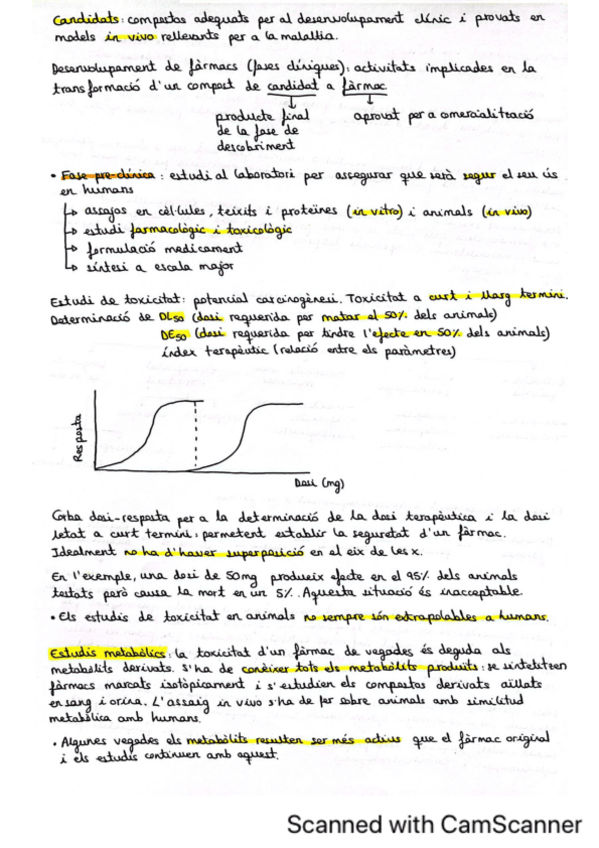 Candidats: compostos adequats per al desenvolupament clínic i provats en
models in vivo rellevants per a la malaltia.
Desenvolupament de fàrmacs (fases clíniques): activitats implicades en la
transformació d'un compost de candidat a fàrmac
producte final
de la fase de
descobriment
aprovat per a comercialització
• Fase pre-clínica: estudi al laboratori per assegurar que serà segur el seu ús
en humans
↳ assajos en cèl·lules, teixits i proteïnes (in vitro) i animals (in vivo)
↳ estudi farmacològic i toxicològic
↳ formulació medicament
↳ síntesi a escala major
Estudi de toxicitat: potencial carcinogènesi. Toxicitat a curt i llarg termini.
Determinació de DL50 (dosi requerida per matar al 50% dels animals)
DE50 (dosi requerida per tindre l'efecte en 50% dels animals)
índex terapèutic (relació entre els paràmetres)
Resposta
Dosi (mg)
Corba dosi-resposta per a la determinació de la dosi terapèutica i la dosi
letal a curt termini: permetent establir la seguretat d'un fàrmac.
Idealment no ha d'haver superposició en el eix de les x.
En l'exemple, una dosi de 50mg produeix efecte en el 95% dels animals
testats però causa la mort en un 5%. Aquesta situació és inacceptable.
• Els estudis de toxicitat en animals no sempre són extrapolables a humans.
Estudis metabòlics: la toxicitat d'un fàrmac de vegades és deguda als
metabòlits derivats. S'ha de conèixer tots els metabòlits produïts: se sintetitzen
fàrmacs marcats isotòpicament i s'estudien els compostos derivats aïllats
en sang i orina. L'assaig in vivo s'ha de fer sobre animals amb similitud
metabòlica amb humans.
• Algunes vegades els metabòlits resulten ser més actius que el fàrmac original
i els estudis continuen amb aquest.
Scanned with CamScanner